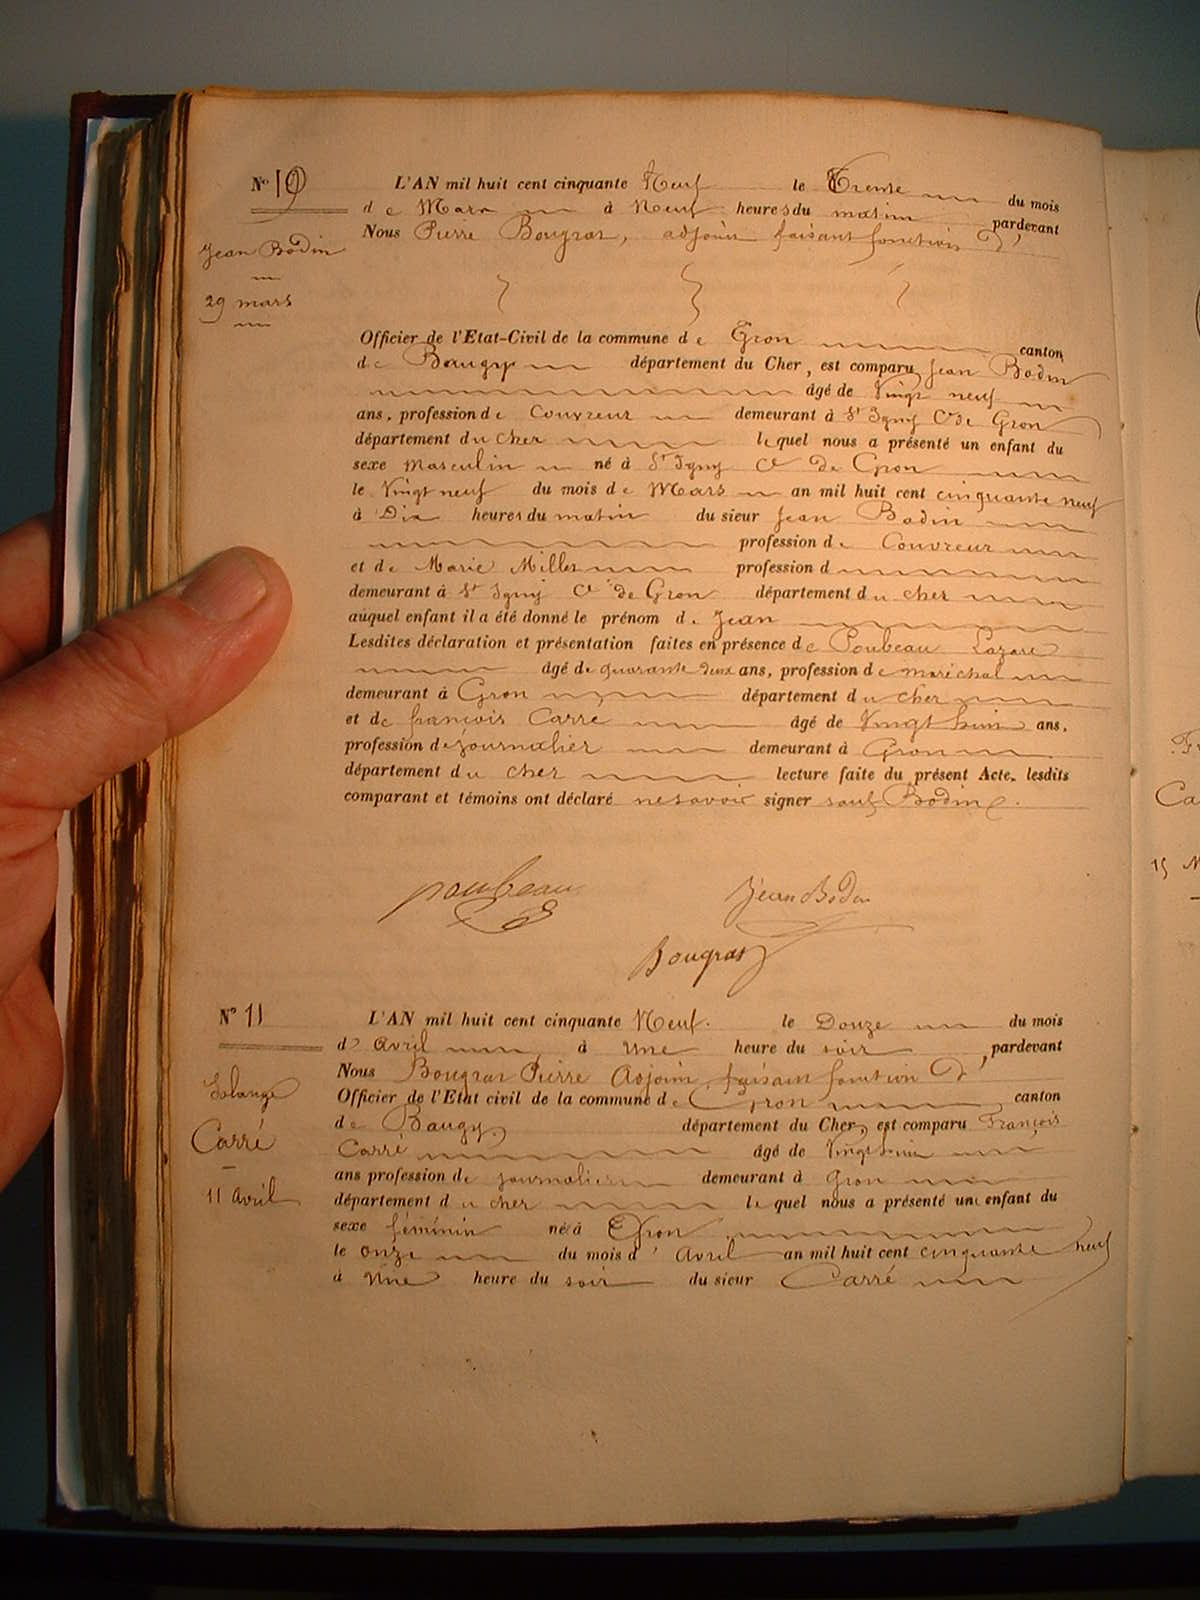 Nº 10
L'AN mil huit cent cinquante Neuf le Trente du mois
de Mars à Neuf heures du matin pardevant
Nous Pierre Bougras, adjoint faisant fonctions d'
Jean Bodin
29 mars
Officier de l'Etat-Civil de la commune de Gron canton
de Baugy département du Cher, est comparu Jean Bodin
âgé de Vingt neuf
ans, profession de Couvreur demeurant à St Igny Cne de Gron
département du cher lequel nous a présenté un enfant du
sexe Masculin né à St Igny Cne de Gron
le Vingt neuf du mois de Mars an mil huit cent cinquante neuf
à Dix heures du matin du sieur Jean Bodin
profession de Couvreur
et de Marie Millet profession d
demeurant à St Igny Cne de Gron département du cher
auquel enfant il a été donné le prénom de Jean
Lesdites déclaration et présentation faites en présence de Poubeau Lazare
âgé de quarante deux ans, profession de maréchal
demeurant à Gron département du cher
et de françois Carré âgé de Vingt huit ans,
profession de journalier demeurant à Gron
département du cher lecture faite du présent Acte, lesdits
comparant et témoins ont déclaré ne savoir signer sauf Bodin
poubeau
Jean Bodin
Bougras
Nº 11
L'AN mil huit cent cinquante Neuf. le Douze du mois
d' Avril à Une heure du soir pardevant
Nous Bougras Pierre Adjoint faisant fonction d'
Solange
Carré
11 avril
Officier de l'Etat civil de la commune de Gron canton
de Baugy département du Cher, est comparu François
Carré âgé de Vingt huit
ans profession de journalier demeurant à Gron
département du cher lequel nous a présenté une enfant du
sexe féminin né à Gron
le onze du mois d' Avril an mil huit cent cinquante neuf
à Une heure du soir du sieur Carré
Ca
15 M